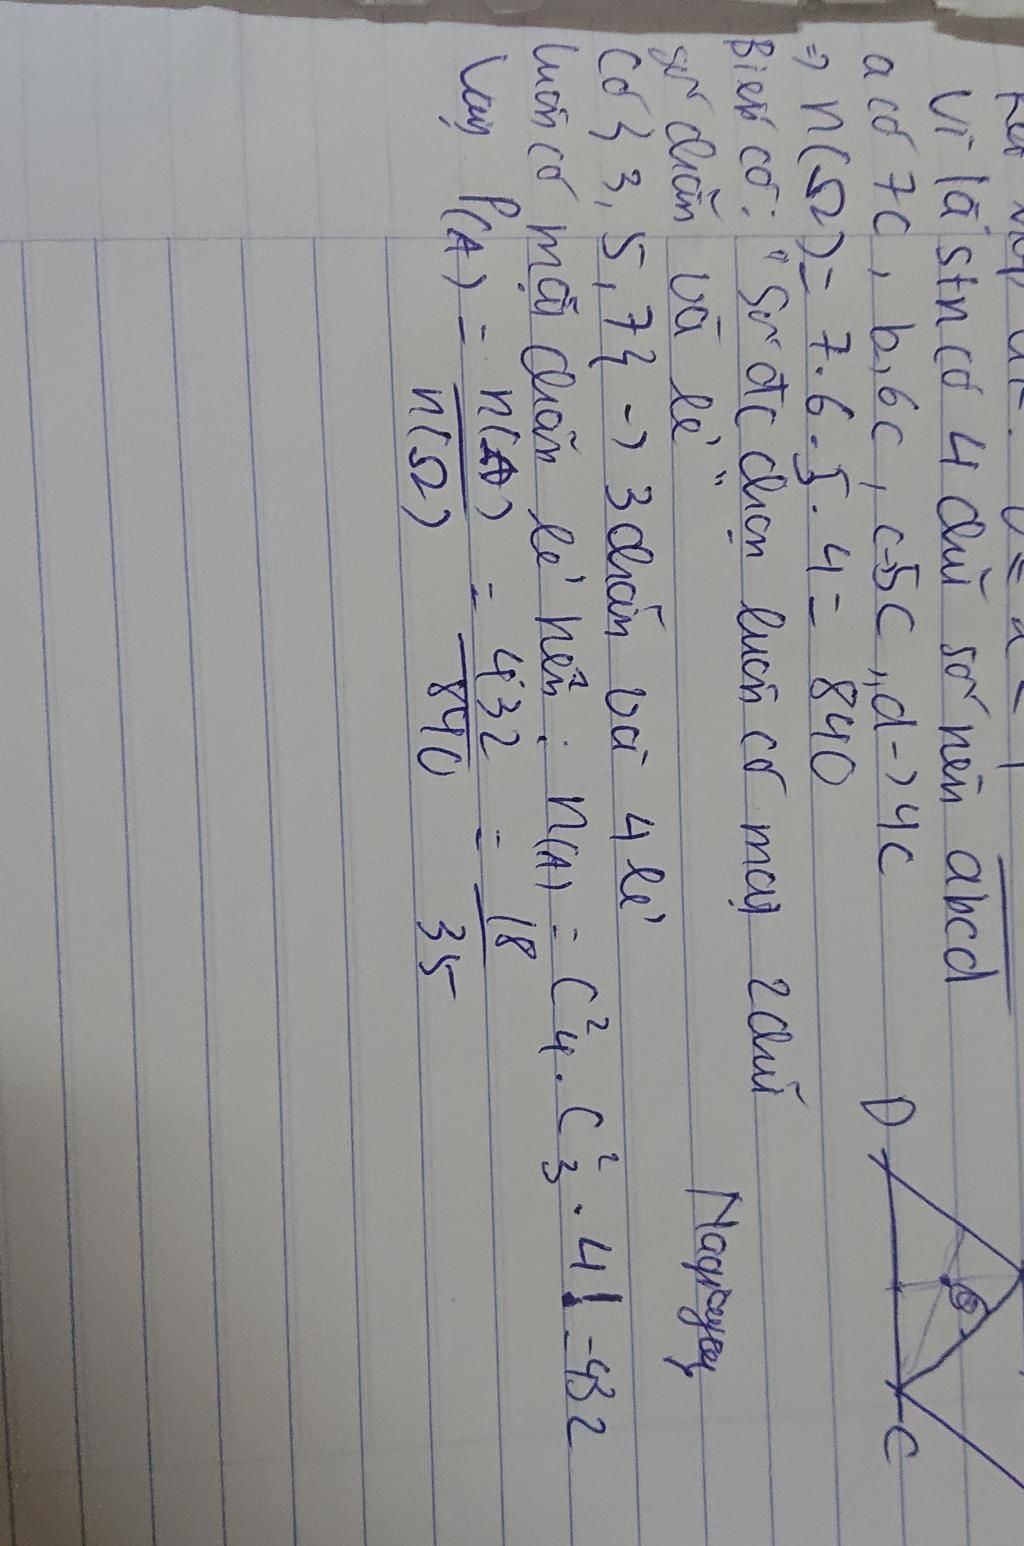 Vì là stn có 4 chữ số nên abcd
a có 7c, b, 6c, c 5c, d → 4c
⇒ n(Ω) = 7.6.5.4 = 840
Biến cố: "số đc chọn luôn có mặt 2 chữ
số chẵn và lẻ"
có } 3, 5, 7 } → 3 chẵn và 4 lẻ
luôn có mặt chẵn lẻ nên: n(A) = C²4 . C²3 . 4! = 432
Vậy P(A) = n(A) / n(Ω) = 432 / 840 = 18 / 35
D
C